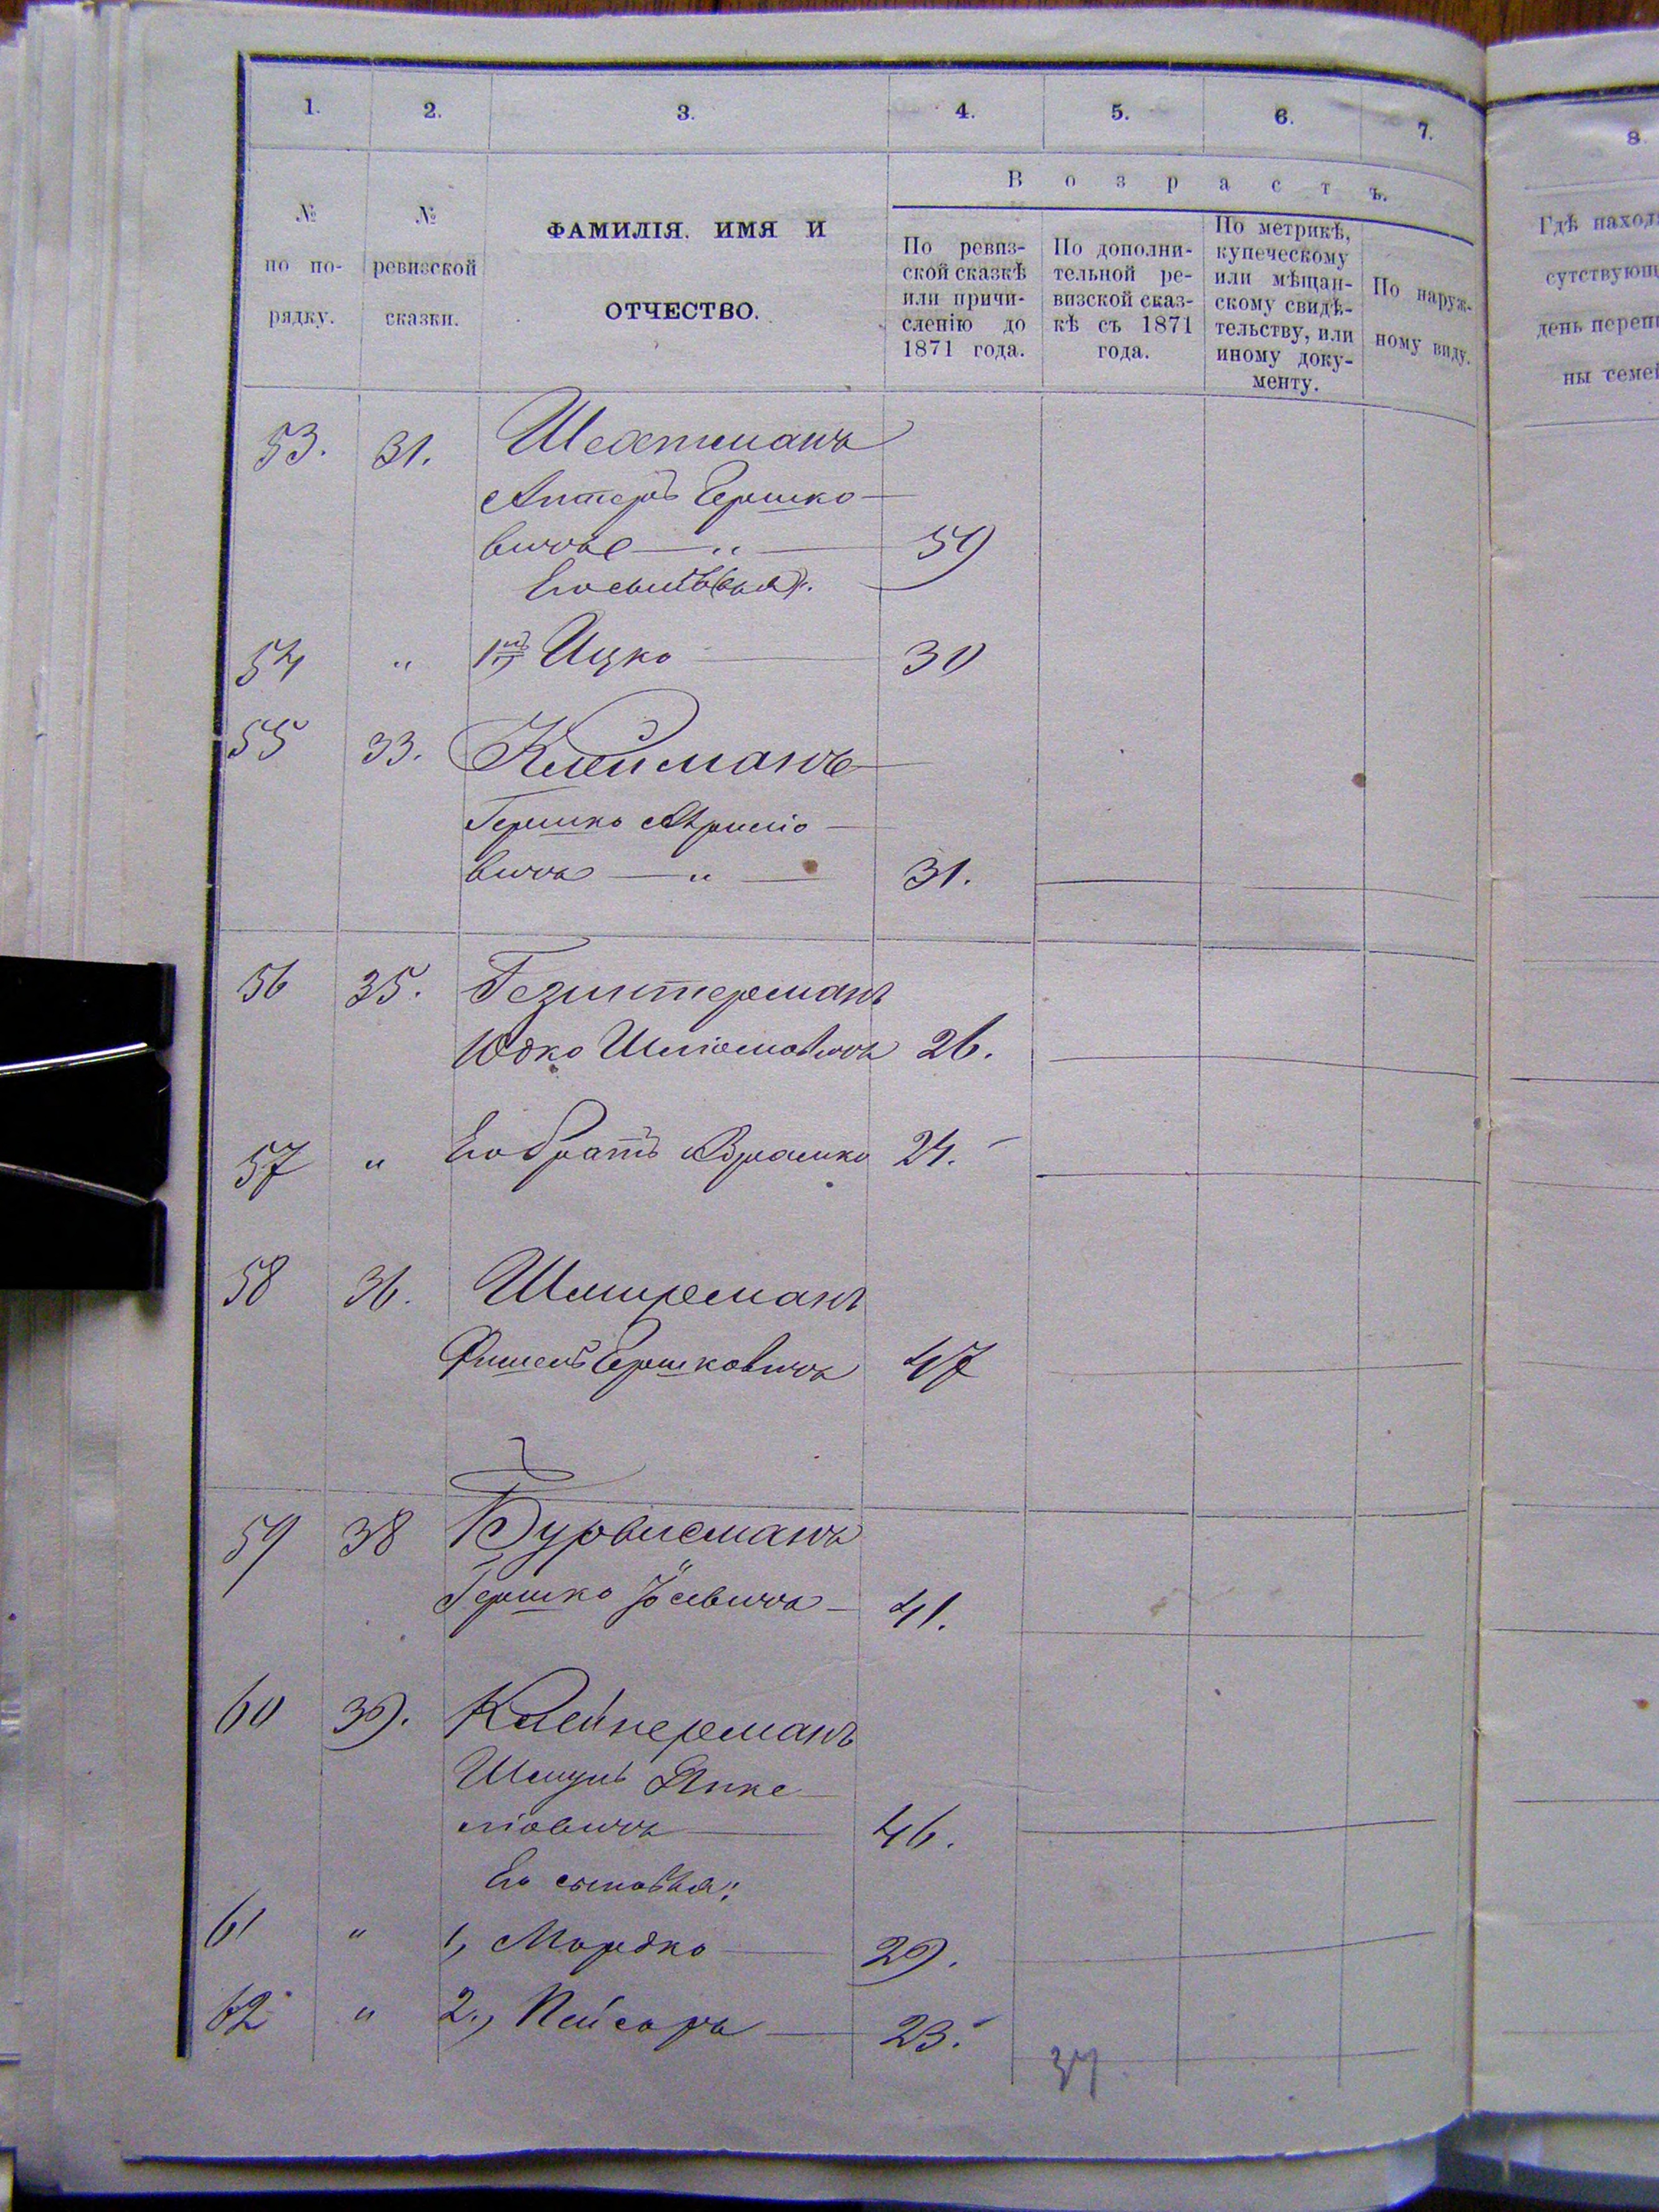 1. 2. 3. 4. 5. 6. 7.
Возрастъ.
№ по порядку.
№ ревизской сказки.
ФАМИЛІЯ. ИМЯ И
ОТЧЕСТВО.
По ревиз-
ской сказкѣ
или причи-
сленію до
1871 года.
По дополни-
тельной ре-
визской сказ-
кѣ съ 1871
года.
По метрикѣ,
купеческому
или мѣщан-
скому свидѣ-
тельству, или
иному доку-
менту.
По наруж-
ному виду.
53. 31.
Гершко-
вичъ — „ — 59
Его сыновья:
54 „ 1й, Ицко — 30
55 33.
Гершко
вичъ — „ — 31.
56 35. Гезинтерманъ
Юдко Шліомовичъ 26.
57 „ Его братъ Абрамко 24.
58 36. Шмирманъ
Фишель Гершковичъ 47
59 38 Бурвисманъ
Гершко — 41.
60 39. Клейнерманъ
Шмуль Янке-
ліовичъ — 46.
Его сыновья:
61 „ 1, Мордко — 29.
62 „ 2., Пейсахъ — 23.
37
8.
Гдѣ находи
сутствующ
день переп
ны семей